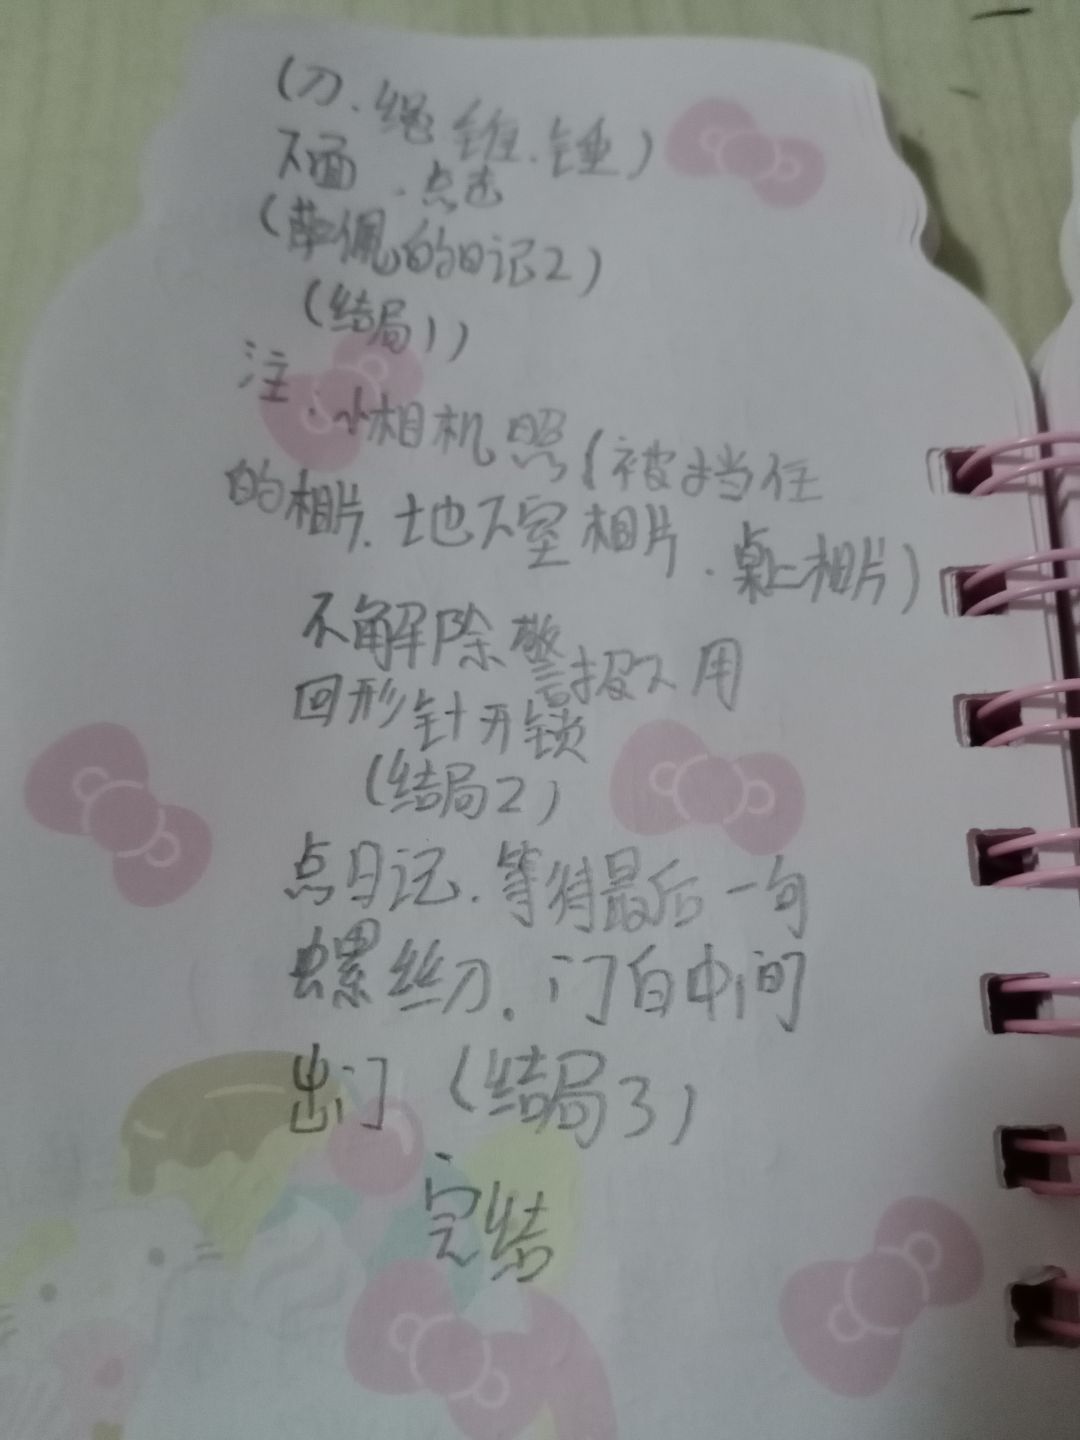 (刀.绳 锥.锤)
下面.点击
(薛佩的日记2)
(结局1)
注:小相机照(被挡住
的相片.地下室相片.桌上相片)
不解除警报不用
回形针开锁
(结局2)
点日记.等待最后一句
螺丝刀.门白中间
出门 (结局3)
完结